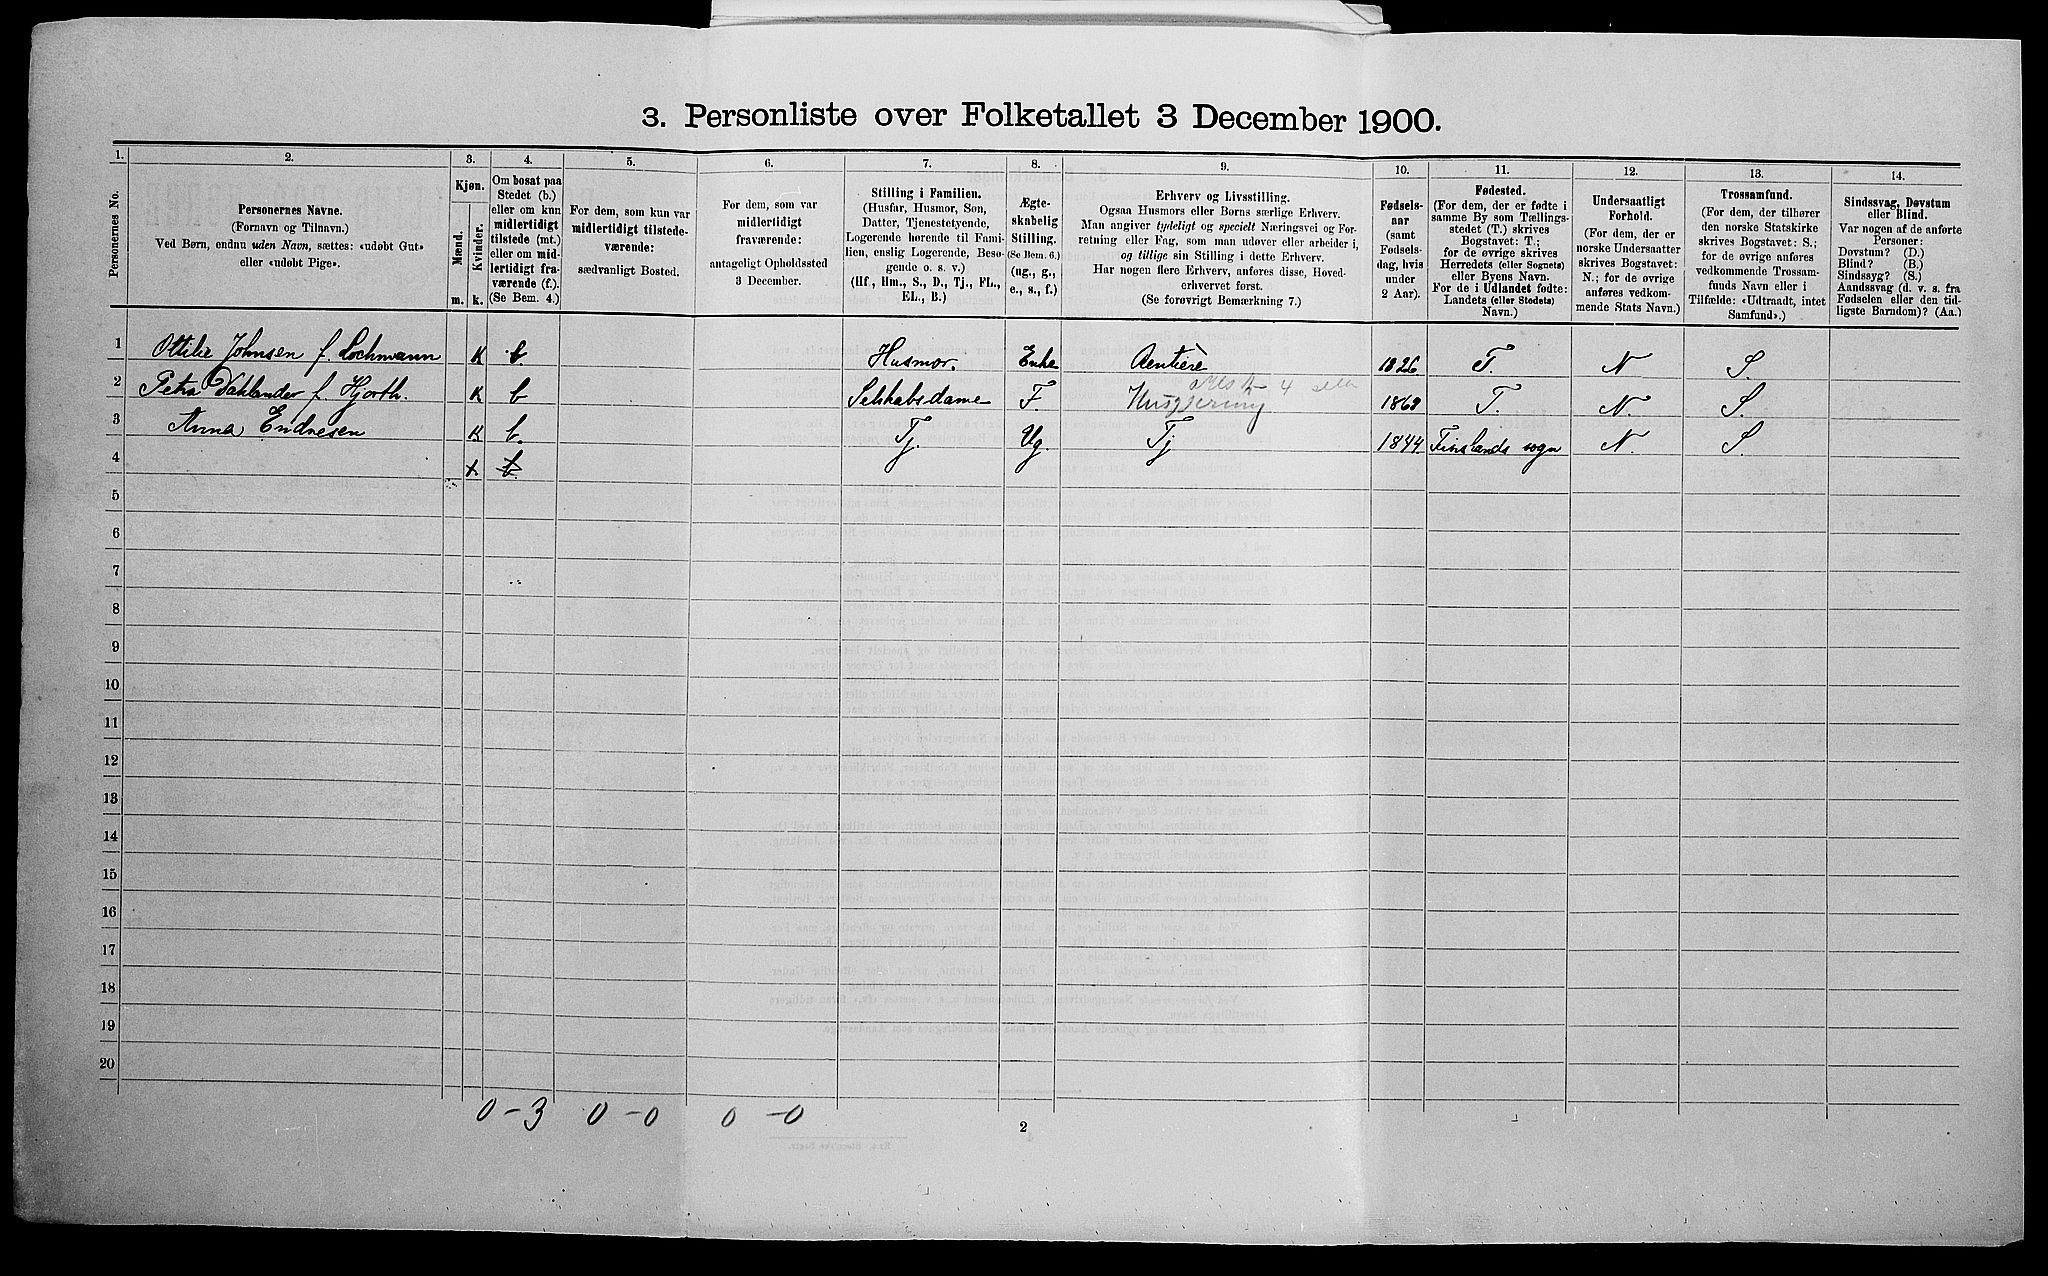 3. Personliste over Folketallet 3 December 1900.
1. 2. 3. 4. 5. 6. 7. 8. 9. 10. 11. 12. 13. 14.
Personernes No.
Personernes Navne.
(Fornavn og Tilnavn.)
Ved Børn, endnu uden Navn, sættes: «udøbt Gut»
eller «udøbt Pige».
Kjøn.
Mænd. Kvinder.
m. k.
Om bosat paa
Stedet (b.)
eller om kun
midlertidigt
tilstede (mt.)
eller om mid-
lertidigt fra-
værende (f.)
(Se Bem. 4.)
For dem, som kun var
midlertidigt tilstede-
værende:
sædvanligt Bosted.
For dem, som var
midlertidigt
fraværende:
antageligt Opholdssted
3 December.
Stilling i Familien.
(Husfar, Husmor, Søn,
Datter, Tjenestetyende,
Logerende hørende til Fami-
lien, enslig Logerende, Besø-
gende o. s. v.)
(Hf., Hm., S., D., Tj., FL.,
EL., B.)
Ægte-
skabelig
Stilling.
(Se Bem. 6.)
(ug., g.,
e., s., f.)
Erhverv og Livsstilling.
Ogsaa Husmors eller Børns særlige Erhverv.
Man angiver tydeligt og specielt Næringsvei og For-
retning eller Fag, som man udøver eller arbeider i,
og tillige sin Stilling i dette Erhverv.
Har nogen flere Erhverv, anføres disse, Hoved-
erhvervet først.
(Se forøvrigt Bemærkning 7.)
Fødsels-
aar
(samt
Fødsels-
dag, hvis
under
2 Aar).
Fødested.
(For dem, der er fødte i
samme By som Tællings-
stedet (T.) skrives
Bogstavet: T.;
for de øvrige skrives
Herredets (eller Sognets)
eller Byens Navn.
For de i Udlandet fødte:
Landets (eller Stedets)
Navn.)
Undersaatligt
Forhold.
(For dem, der er
norske Undersaatter
skrives Bogstavet:
N.; for de øvrige
anføres vedkom-
mende Stats Navn.)
Trossamfund.
(For dem, der tilhører
den norske Statskirke
skrives Bogstavet: S.;
for de øvrige anføres
vedkommende Trossam-
funds Navn eller i
Tilfælde: «Udtraadt, intet
Samfund».)
Sindssvag, Døvstum
eller Blind.
Var nogen af de anførte
Personer:
Døvstum? (D.)
Blind? (B.)
Sindssyg? (S.)
Aandssvag (d. v. s. fra
Fødselen eller den tid-
ligste Barndom)? (Aa.)
1 Ottilie Johnsen f. Lochmann K b Husmor. Enke Rentière 1826 T. N S.
2 Petra Dahlander f. Hjorth. K b Selskabsdame F. Husgjerning 1863 T. N. S.
3 Anna Endresen K b. Tj. Ug. Tj 1844. Finslands sogn N. S.
4 K b.
5
6
7
8
9
10
11
12
13
14
15
16
17
18
19
20
0-3 0-0 0-0
2